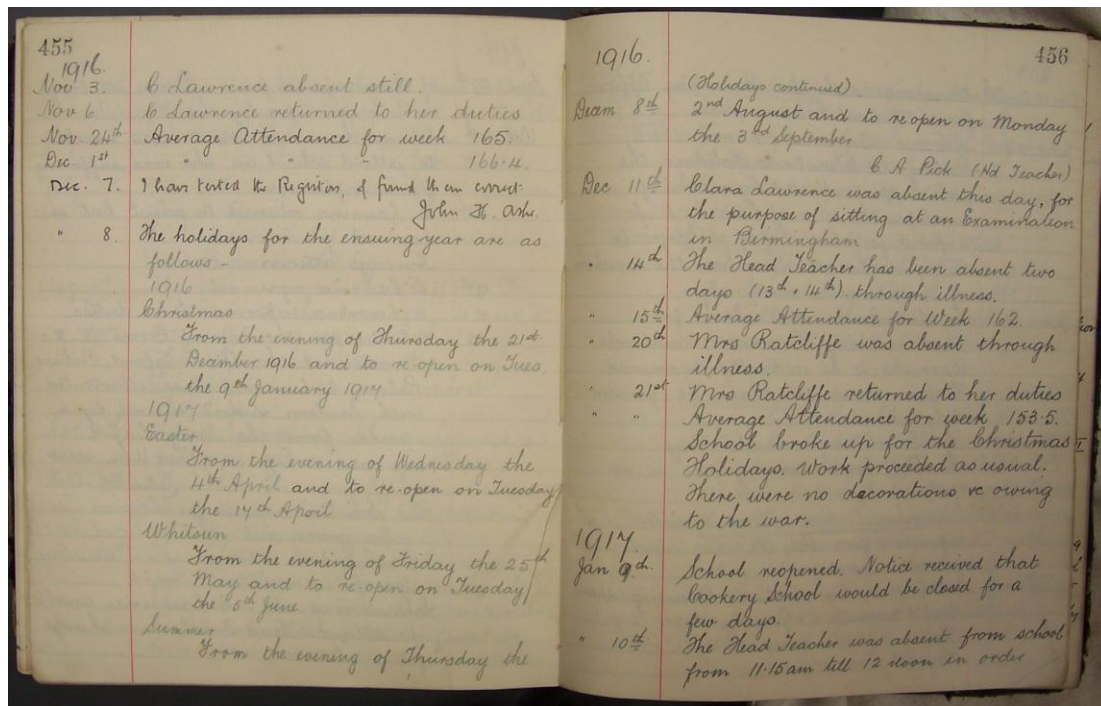 455
1916.
Nov 3. C Lawrence absent still.
Nov 6 C Lawrence returned to her duties
Nov 24th Average Attendance for week 165.
Dec 1st " " " 166.4.
Dec. 7. I have tested the Registers, & found them correct.
John H.
" 8. The holidays for the ensuing year are as
follows:-
1916
Christmas
From the evening of Thursday the 21st
December 1916 and to re open on Tues.
the 9th January 1917
1917
Easter
From the evening of Wednesday the
4th April and to re-open on Tuesday
the 17th April
Whitsun
From the evening of Friday the 25th
May and to re-open on Tuesday
the 5th June
Summer
From the evening of Thursday the
456
1916.
(Holidays continued)
Decem. 8th 2nd August and to reopen on Monday
the 3rd September
C A Pick (Hd Teacher)
Dec 11th Clara Lawrence was absent this day, for
the purpose of sitting at an Examination
in Birmingham
" 14th The Head Teacher has been absent two
days (13th & 14th) through illness.
" 15th Average Attendance for Week 162.
" 20th Mrs Ratcliffe was absent through
illness.
" 21st Mrs Ratcliffe returned to her duties
" " Average Attendance for week 153.5.
School broke up for the Christmas
Holidays. Work proceeded as usual.
There were no decorations &c owing
to the war.
1917.
Jan 9th. School reopened. Notice received that
Cookery School would be closed for a
few days.
" 10th The Head Teacher was absent from school
from 11.15am till 12 noon in order